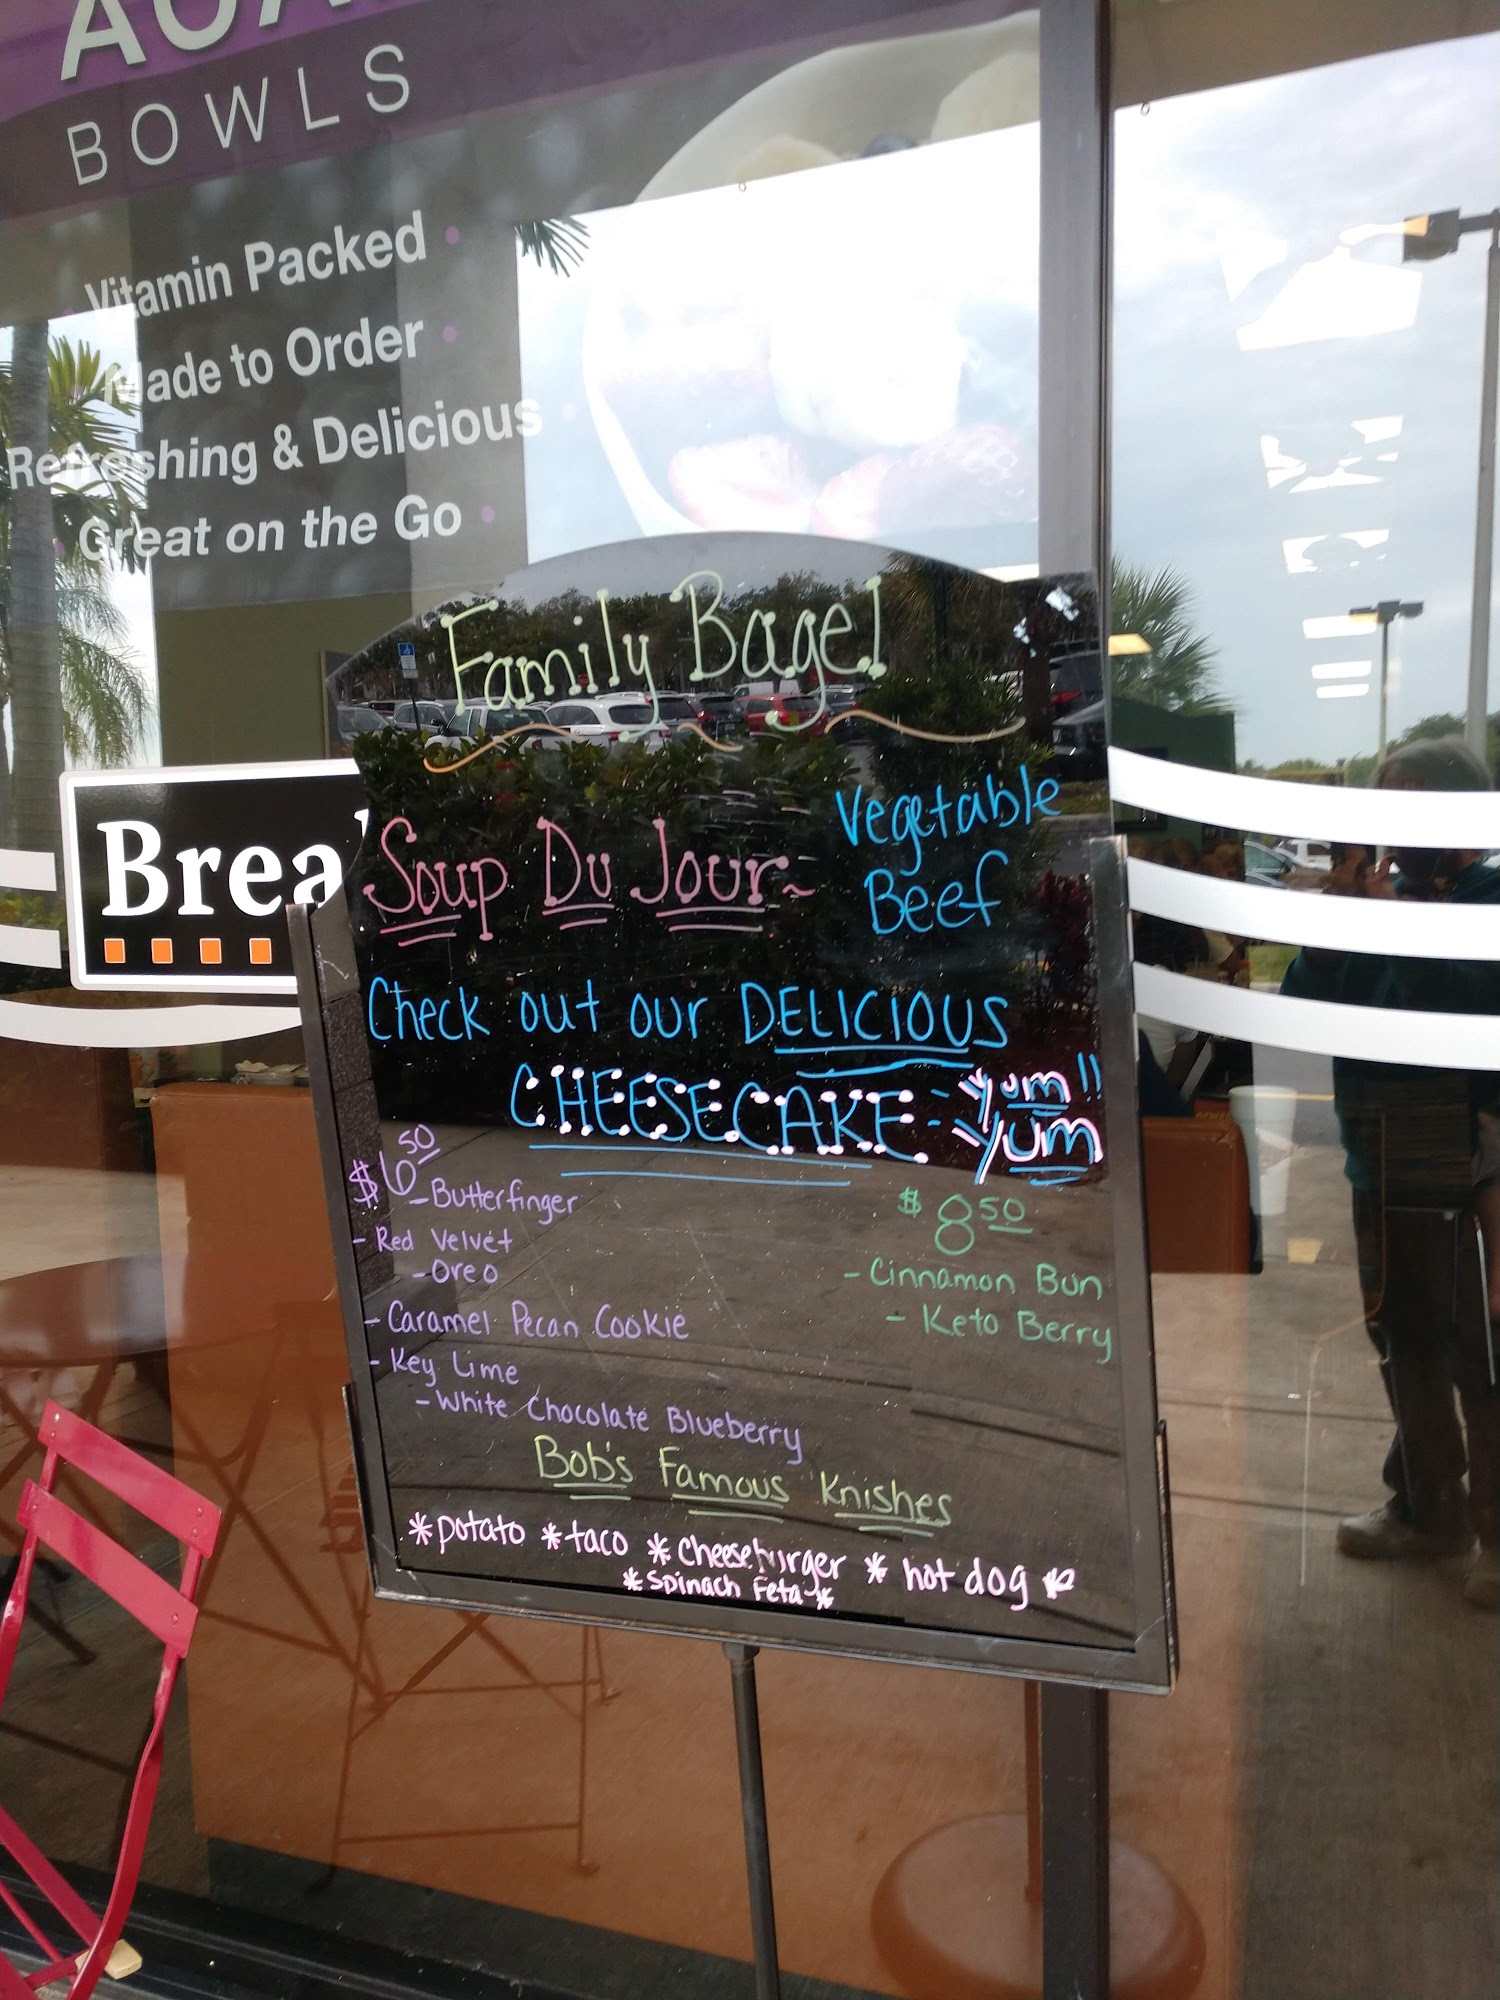 BOWLS
Vitamin Packed
Made to Order
Refreshing & Delicious
Great on the Go
Family Bagel
Soup Du Jour~ Vegetable
Beef
Check out our DELICIOUS
CHEESECAKE - Yum!!
Yum
$6 50
- Butterfinger
- Red Velvet
- Oreo
- Caramel Pecan Cookie
- Key Lime
- White Chocolate Blueberry
$8 50
- Cinnamon Bun
- Keto Berry
Bob's Famous Knishes
*potato *taco *cheeseburger *hot dog*
*Spinach Feta*